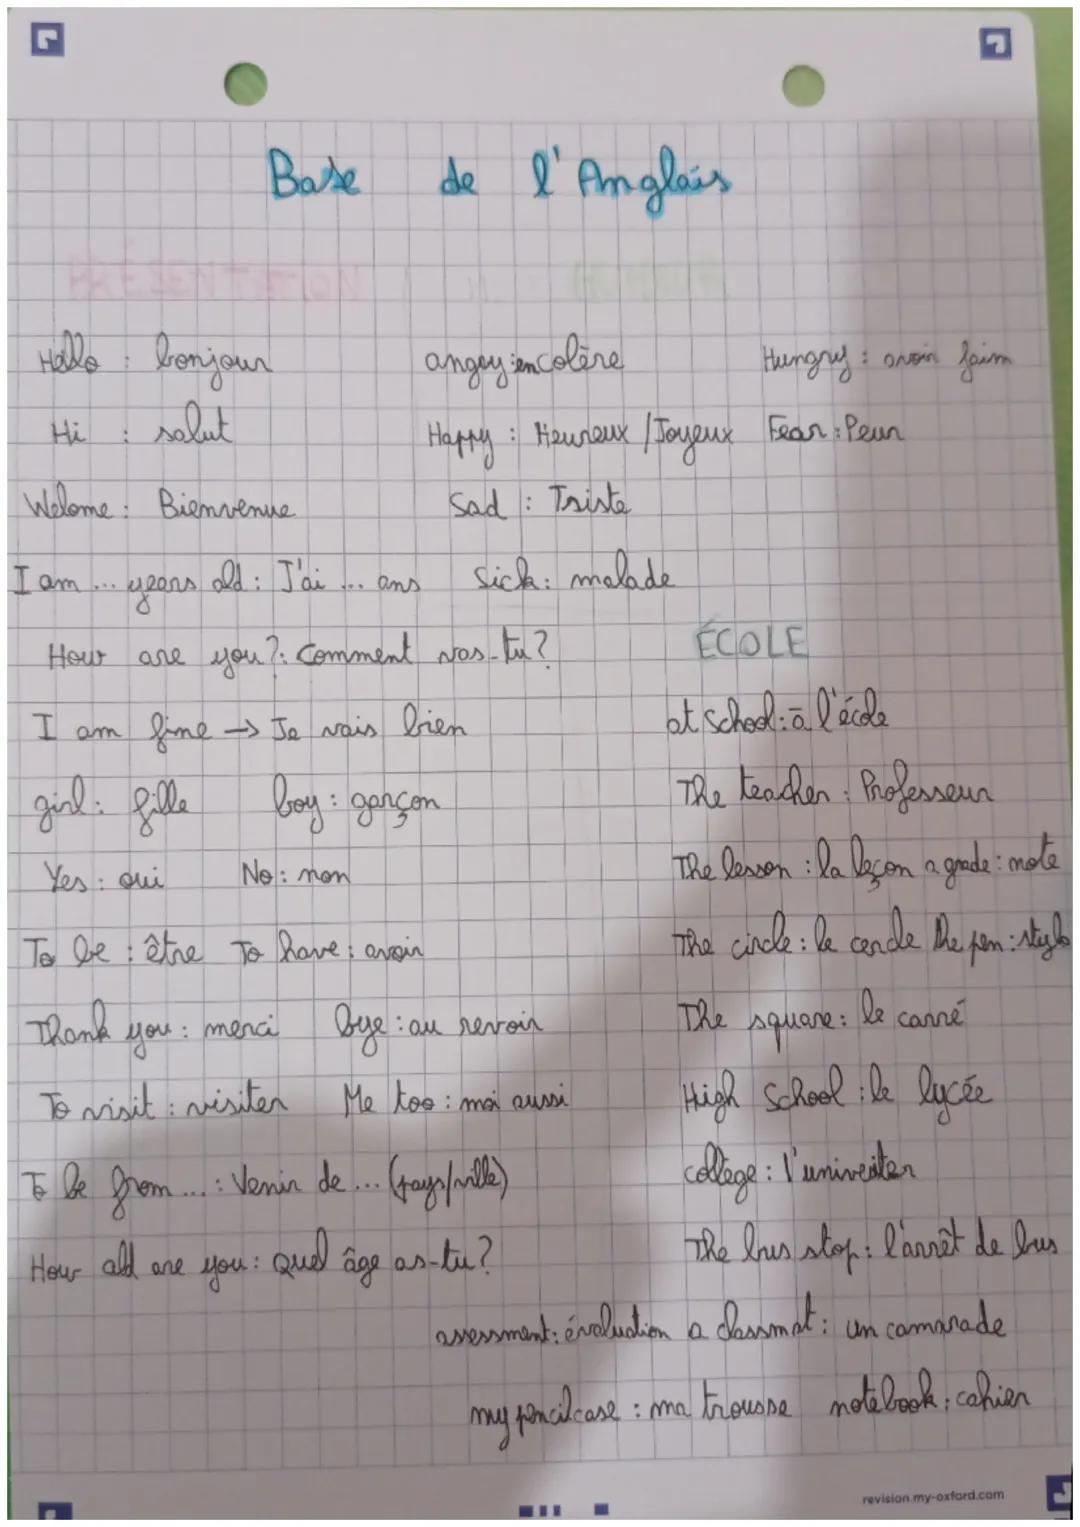 Base de l'Anglais
PRÉSENTATION HUMEUR
Hello : bonjour angry : en colère Hungry : avoir faim
Hi : salut Happy : Heureux / Joyeux Fear : Peur
Welome : Bienvenue Sad : Triste
I am ... years old : J'ai ... ans Sick : malade
How are you ? : Comment vas-tu ? ÉCOLE
I am fine → Je vais bien at School : à l'école
girl : fille boy : garçon The teacher : Professeur
Yes : oui No : non The lesson : la leçon a grade : note
To be : être To have : avoir The circle : le cercle the pen : stylo
Thank you : merci bye : au revoir The square : le carré
To visit : visiter Me too : moi aussi High School : le lycée
To be from ... : Venir de ... (pays/ville) collège : l'univeriter
How old are you : Quel âge as-tu ? The bus stop : l'arrêt de bus
assessment : évaluation a classmat : un camarade
my pencilcase : ma trousse notebook : cahier
revision.my-oxford.com